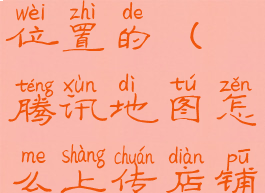 wèi zhì de
位置的（
téng xùn dì tú zěn
腾讯地图怎
me shàng chuán diàn pū
么上传店铺